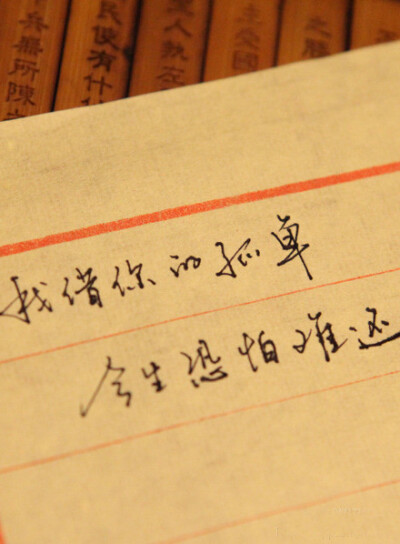 兵無所陳
民使有什
人執左
之勝
我借你的孤单
今生恐怕难还